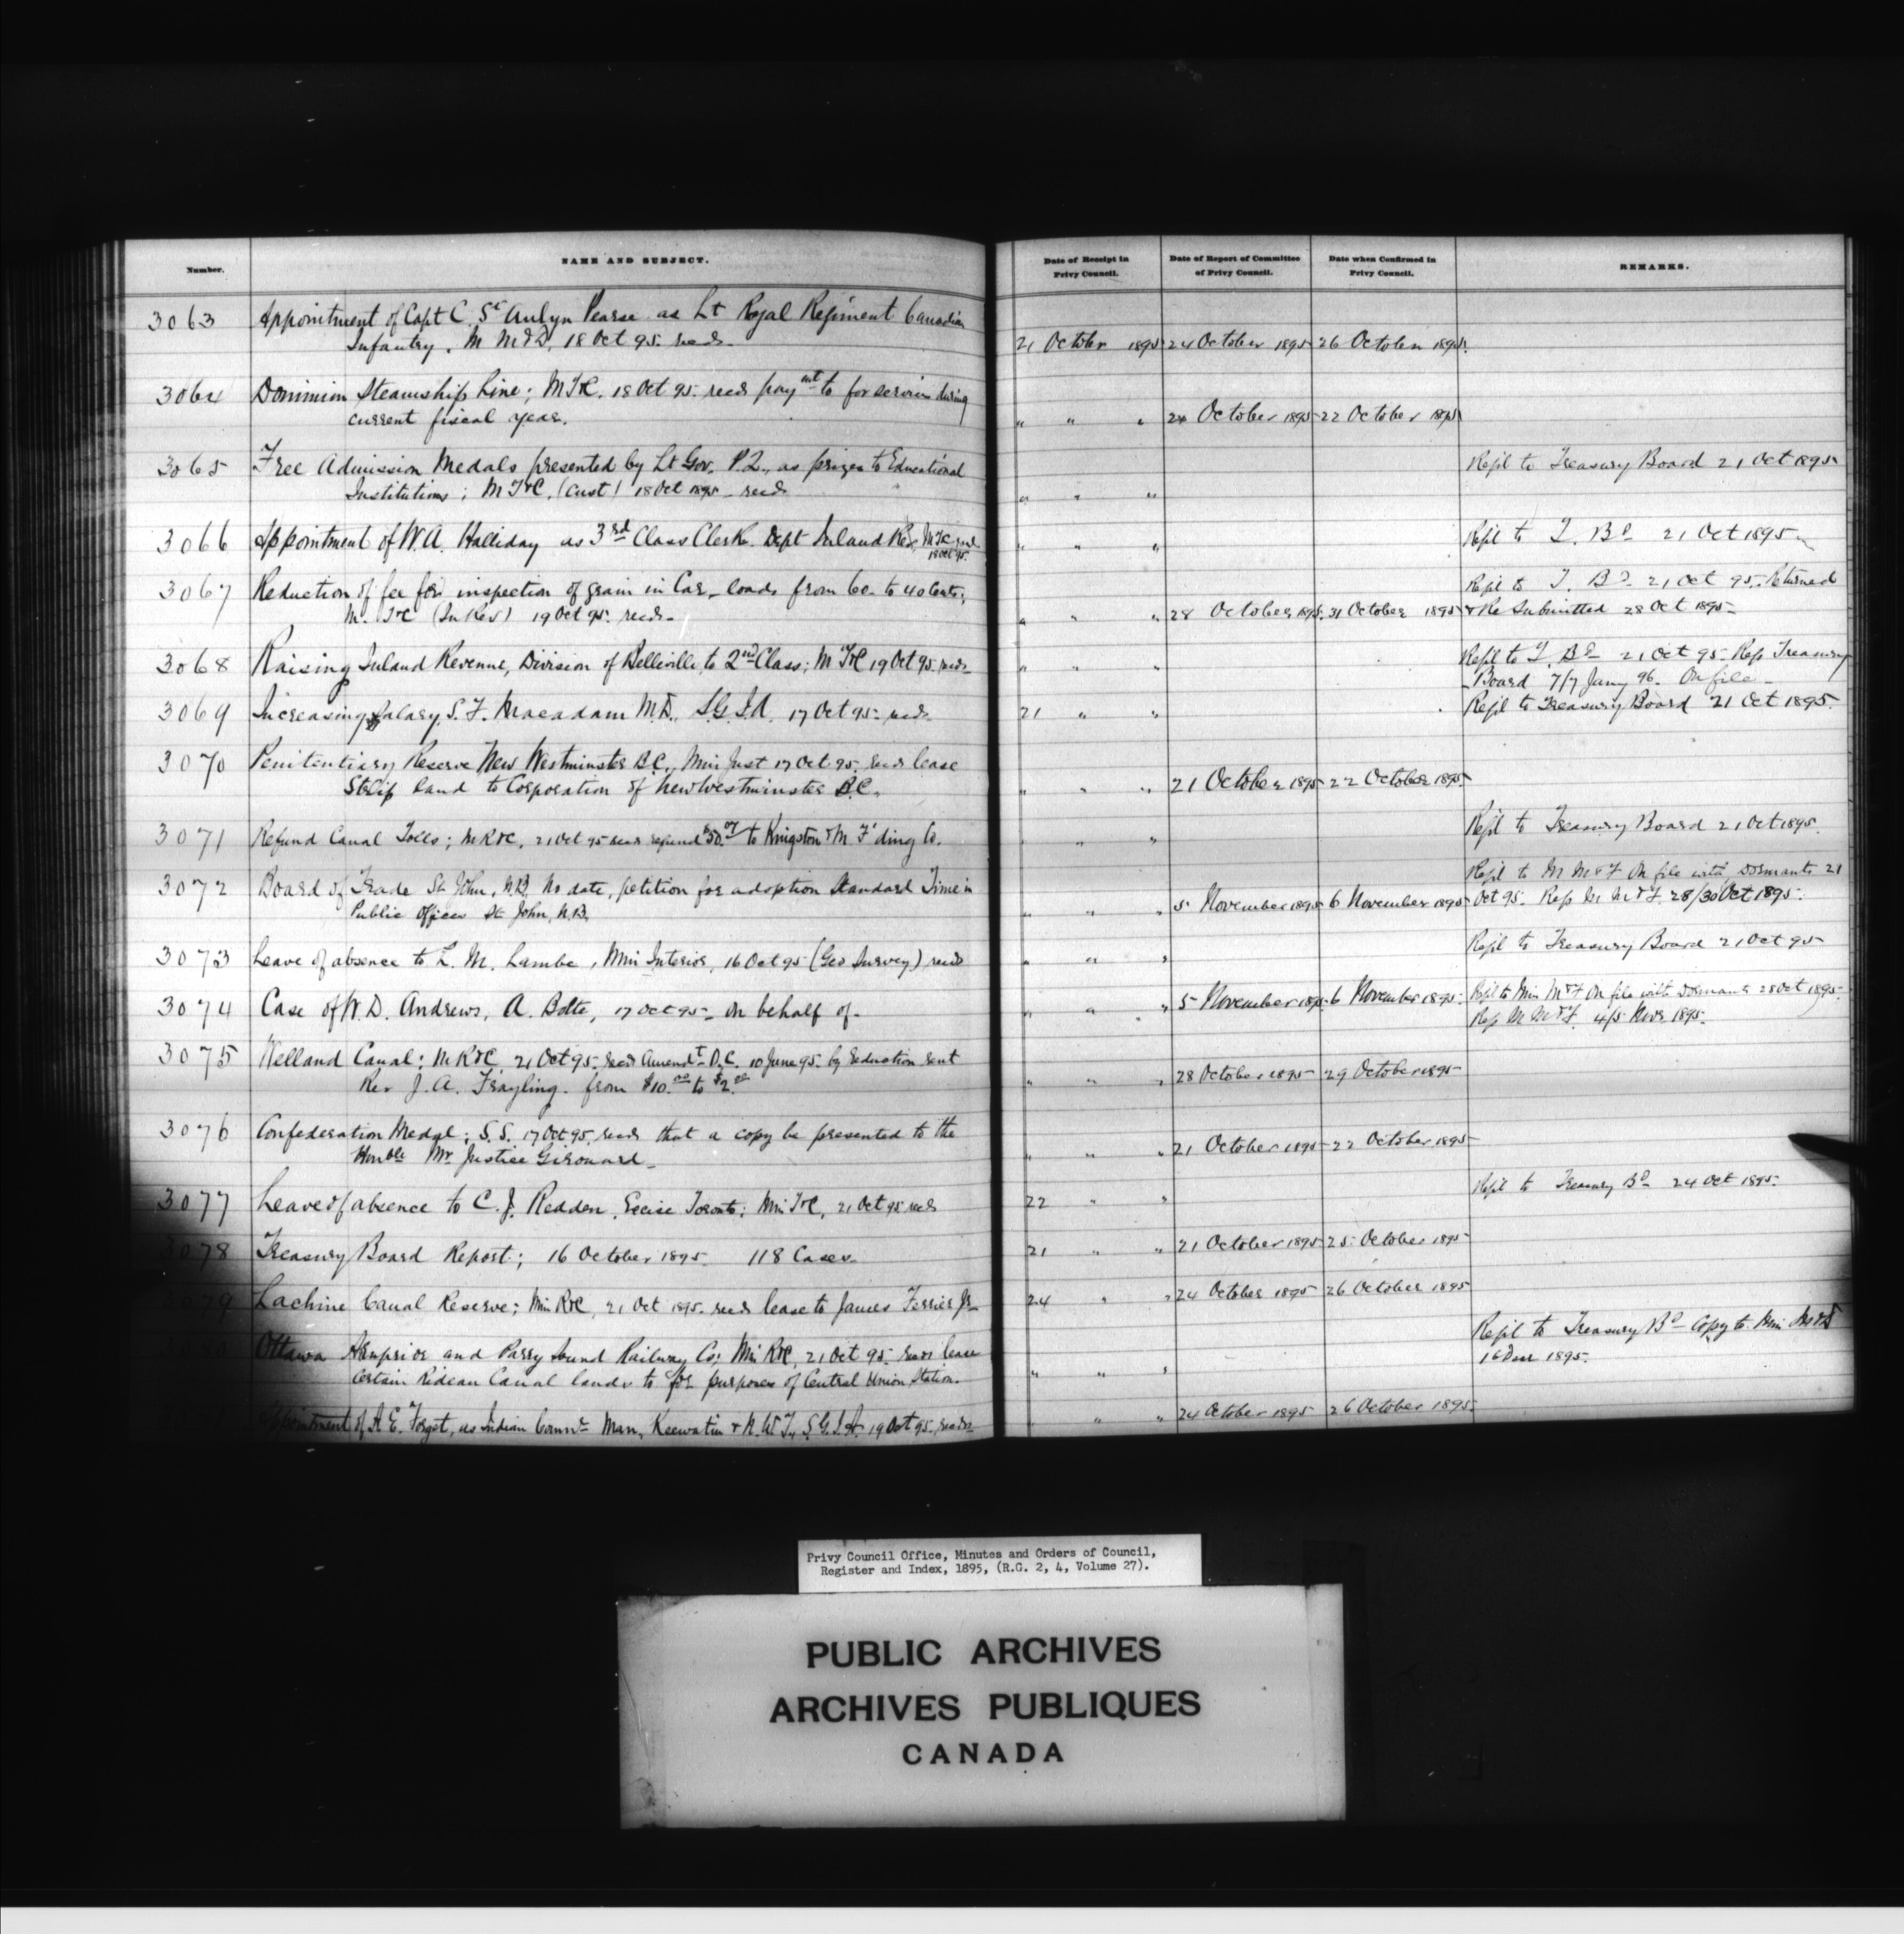 Number.
NAME AND SUBJECT.
Date of Receipt in Privy Council.
Date of Report of Committee of Privy Council.
Date when Confirmed in Privy Council.
REMARKS.
3063 Appointment of Capt C. St Aulyn Pearse as Lt Royal Regiment Canadian
Infantry. M M&D, 18 Oct 95. recds. 21 October 1895 24 October 1895 26 October 1895.
3064 Dominion Steamship Line; M T&C. 18 Oct 95. recds paymt to for services during
current fiscal year. " " " 24 October 1895 22 October 1895
3065 Free Admission Medals presented by Lt Gov. P.Q., as prizes to Educational Refd to Treasury Board 21 Oct 1895
Institutions; M T&C. (Cust) 18 Oct 1895 - recds " " "
3066 Appointment of W. A. Halliday as 3rd Class Clerk. Dept Inland Rev, M T&C recds 18 Oct 95. " " " Refd to T. Bd 21 Oct 1895
3067 Reduction of fee for inspection of grain in Car-loads from 60 to 40 Cents; Refd to T. Bd 21 Oct 95. Returned
M. T&C (In Rev) 19 Oct 95. recds. " " " 28 October 1895. 31 October 1895 & Re Submitted 28 Oct 1895
3068 Raising Inland Revenue, Division of Belleville to 2nd Class; M T&C 19 Oct 95. recds " " " Refd to T. Bd 21 Oct 95 Rep Treasury
Board 7/7 Jany 96. On file
3069 Increasing Salary S. F. Macadam M.D. S.G.I.A. 17 Oct 95. recds 21 " " Refd to Treasury Board 21 Oct 1895.
3070 Penitentiary Reserve New Westminster B.C., Min Just 17 Oct 95. recds lease
Strip land to Corporation of New Westminster B.C. " " " 21 October 1895 22 October 1895
3071 Refund Canal Tolls; M R&C, 21 Oct 95 recds refund to Kingston & M. F'ding Co. " " Refd to Treasury Board 21 Oct 1895.
3072 Board of Trade St. John, N.B. No date, petition for adoption Standard Time in Refd to M M&F On file with Dormants 21
Public Offices St. John, N.B. " " " 5 November 1895 6 November 1895 Oct 95. Rep M M&F. 28/30 Oct 1895.
3073 Leave of absence to L. M. Lambe, Min Interior, 16 Oct 95 (Geo Survey) recds " " " Refd to Treasury Board 21 Oct 95
3074 Case of W. D. Andrews, A. Bolte, 17 Oct 95 - on behalf of. " " " 5 November 1895. 6 November 1895. Refd to Min M&F On file with Dormants 28 Oct 1895.
Rep M M&F. 4/5 Novr 1895.
3075 Welland Canal; M R&C, 21 Oct 95. recds Amendt O.C. 10 June 95. by reduction rent
Rev J. A. Trayling. from $10.00 to $2.00 " " " 28 October 1895 29 October 1895
3076 Confederation Medal; S. S. 17 Oct 95. recds that a copy be presented to the
Honble Mr Justice Girouard " " " 21 October 1895 22 October 1895
3077 Leave of absence to C. J. Redden, Excise Toronto; Min T&C, 21 Oct 95 recds 22 " " Refd to Treasury Bd 24 Oct 1895.
3078 Treasury Board Report; 16 October 1895. 118 Cases 21 " " 21 October 1895 25 October 1895
3079 Lachine Canal Reserve; Min R&C, 21 Oct 1895. recds lease to James Ferrier Jr 24 " " 24 October 1895 26 October 1895
Ottawa Arnprior and Parry Sound Railway Co; Min R&C, 21 Oct 95. recds lease Refd to Treasury Bd Copy to Min
certain Rideau Canal lands to for purposes of Central Union Station. " " " 16 Decr 1895.
Appointment of A. E. Forget, as Indian Commr Man, Keewatin & N.W.T., S.G.I.A. 19 Oct 95. recds " " " 24 October 1895 26 October 1895.
Privy Council Office, Minutes and Orders of Council,
Register and Index, 1895, (R.G. 2, 4, Volume 27).
PUBLIC ARCHIVES
ARCHIVES PUBLIQUES
CANADA